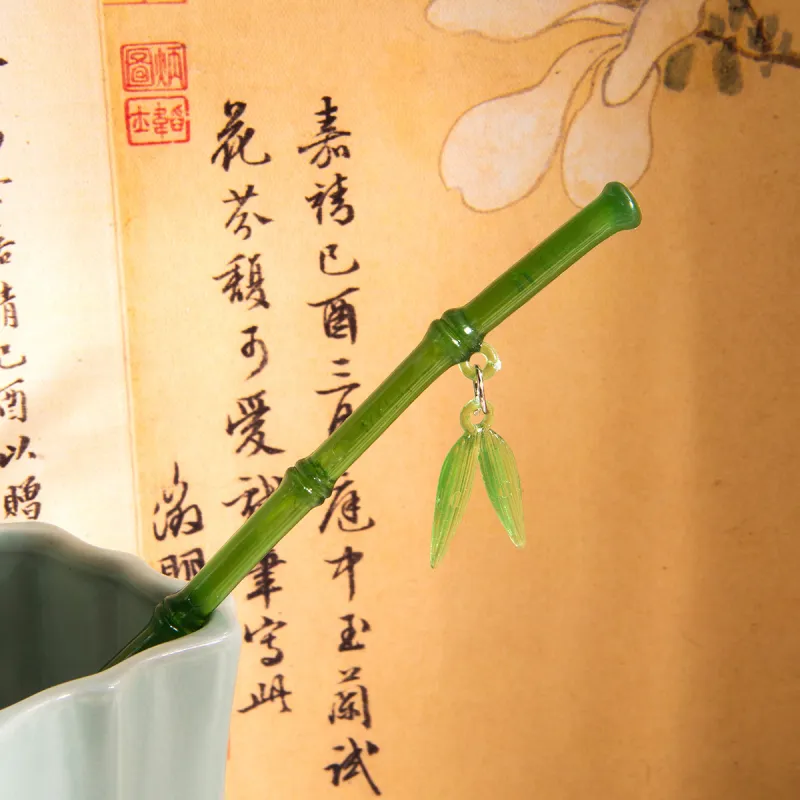 嘉靖己酉三月庭中玉蘭試
花芬馥可愛筆寫此
徵明
靖己酉以贈